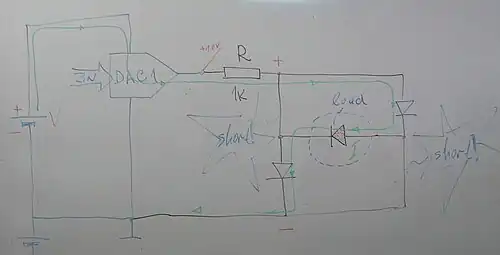 R
+
IN
DAC1
+
V
1K
load
short
short
-
-